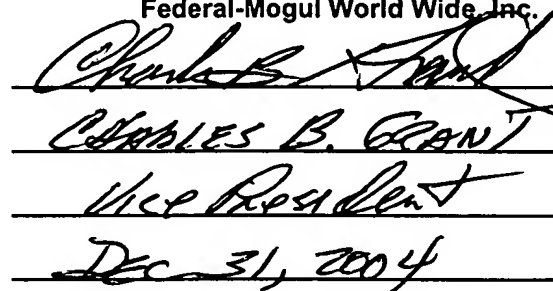 Federal-Mogul World Wide, Inc.
Charles B. Grant
CHARLES B. GRANT
Vice President
DEC 31, 2004